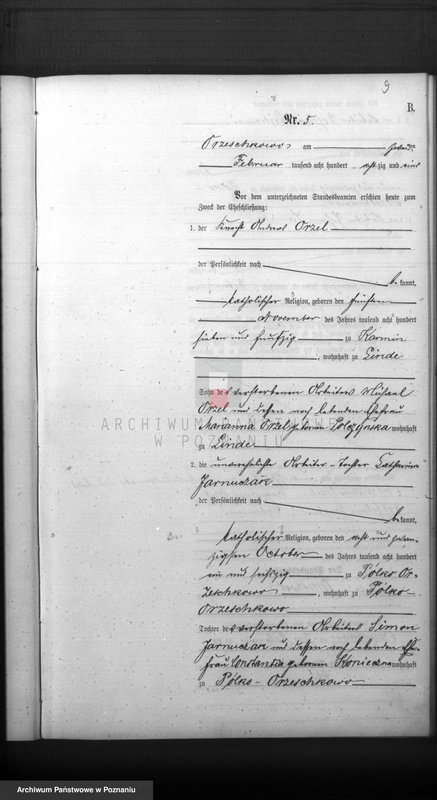 9
B.
Nr. 5.
Orzeschkowo am zweiten
Februar tausend acht hundert acht zig und eins
Vor dem unterzeichneten Standesbeamten erschien heute zum
Zweck der Eheschließung:
1. der Knecht Andreas Orzel
der Persönlichkeit nach
be kannt,
katholischer Religion, geboren den fünften
November des Jahres tausend acht hundert
sieben und fünfzig zu Karmin
, wohnhaft zu Linde
Sohn des verstorbenen Arbeiters Michael
Orzel und dessen noch lebenden Ehefrau
Marianna Orzel geborene wohnhaft
zu Linde
2. die unverehelichte Arbeiter-Tochter Catharina
Jarniczak
der Persönlichkeit nach
be kannt,
katholischer Religion, geboren den acht und zwan-
zigsten October des Jahres tausend acht hundert
ein und sechszig zu Polko Or-
zeschkowo, wohnhaft zu Polko-
Orzeschkowo
Tochter des verstorbenen Arbeiters Simon
Jarniczak und dessen noch lebenden Ehe-
frau Constantia geborenen Konieczna wohnhaft
zu Polko-Orzeschkowo
ARCHIWUM PAŃSTWOWE
W POZNANIU
Archiwum Państwowe w Poznaniu